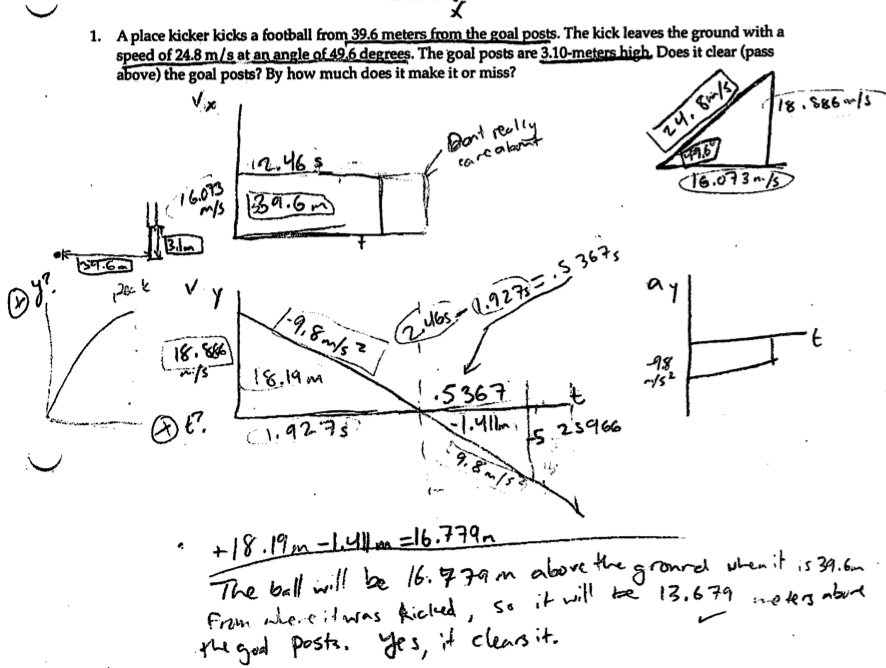 x
1. A place kicker kicks a football from 39.6 meters from the goal posts. The kick leaves the ground with a
speed of 24.8 m/s at an angle of 49.6 degrees. The goal posts are 3.10-meters high. Does it clear (pass
above) the goal posts? By how much does it make it or miss?
Vx
Dont really
care about
24.8m/s
18.886 m/s
49.6°
16.073 m/s
2.46 s
16.073
m/s
39.6 m
t
3.1m
39.6m
y?
peak
t?
Vy
-9.8 m/s²
2.46s - 1.927s = .5367s
18.886
m/s
18.19 m
1.927s
.5367
t
-1.411m
5.25966
9.8 m/s²
ay
t
-9.8
m/s²
+18.19m - 1.411m = 16.779m
The ball will be 16.779 m above the ground when it is 39.6m
from where it was kicked, so it will be 13.679 meters above
the goal posts. Yes, it clears it.